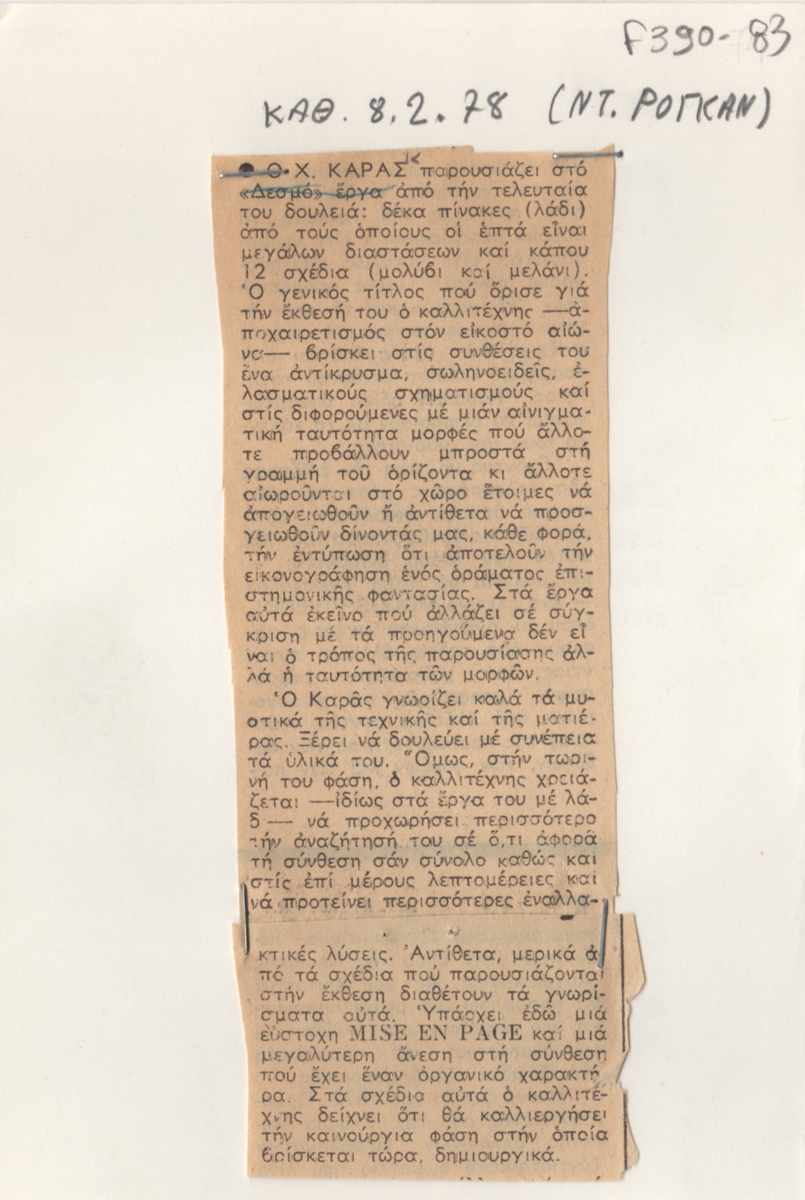 F390-83
ΚΑΘ. 8.2.78 (ΝΤ. ΡΟΓΚΑΝ)
● Ο Χ. ΚΑΡΑΣ παρουσιάζει στό
«Δεσμό» ἔργα ἀπό τήν τελευταία
του δουλειά: δέκα πίνακες (λάδι)
ἀπό τούς ὁποίους οἱ ἑπτά εἶναι
μεγάλων διαστάσεων καί κάπου
12 σχέδια (μολύβι καί μελάνι).
Ὁ γενικός τίτλος πού ὅρισε γιά
τήν ἔκθεσή του ὁ καλλιτέχνης —ἀ-
ποχαιρετισμός στόν εἰκοστό αἰώ-
να— βρίσκει στίς συνθέσεις του
ἕνα ἀντίκρυσμα, σωληνοειδεῖς, ἐ-
λασματικούς σχηματισμούς καί
στίς διφορούμενες μέ μιάν αἰνιγμα-
τική ταυτότητα μορφές πού ἄλλο-
τε προβάλλουν μπροστά στή
γραμμή τοῦ ὁρίζοντα κι ἄλλοτε
αἰωροῦνται στό χῶρο ἕτοιμες νά
ἀπογειωθοῦν ἤ ἀντίθετα νά προσ-
γειωθοῦν δίνοντάς μας, κάθε φορά,
τήν ἐντύπωση ὅτι ἀποτελοῦν τήν
εἰκονογράφηση ἑνός ὁράματος ἐπι-
στημονικῆς φαντασίας. Στά ἔργα
αὐτά ἐκεῖνο πού ἀλλάζει σέ σύγ-
κριση μέ τά προηγούμενα δέν εἶ
ναι ὁ τρόπος τῆς παρουσίασης ἀλ-
λά ἡ ταυτότητα τῶν μορφῶν.
Ὁ Καρᾶς γνωρίζει καλά τά μυ-
στικά τῆς τεχνικῆς καί τῆς ματιέ-
ρας. Ξέρει νά δουλεύει μέ συνέπεια
τά ὑλικά του. Ὅμως, στήν τωρι-
νή του φάση, ὁ καλλιτέχνης χρειά-
ζεται —ἰδίως στά ἔργα του μέ λά-
δ — νά προχωρήσει περισσότερο
τήν ἀναζήτησή του σέ ὅ,τι ἀφορᾶ
τή σύνθεση σάν σύνολο καθώς και
στίς ἐπί μέρους λεπτομέρειες καί
νά προτείνει περισσότερες ἐναλλα-
κτικές λύσεις. Ἀντίθετα, μερικά ἀ
πό τά σχέδια πού παρουσιάζονται
στήν ἔκθεση διαθέτουν τά γνωρί-
σματα αὐτά. Ὑπάρχει ἐδῶ μιά
εὔστοχη MISE EN PAGE καί μιά
μεγαλύτερη ἄνεση στή σύνθεση
πού ἔχει ἕναν ὀργανικό χαρακτή
ρα. Στά σχέδια αὐτά ὁ καλλιτέ-
χνης δείχνει ὅτι θά καλλιεργήσει
τήν καινούργια φάση στήν ὁποία
βρίσκεται τώρα, δημιουργικά.